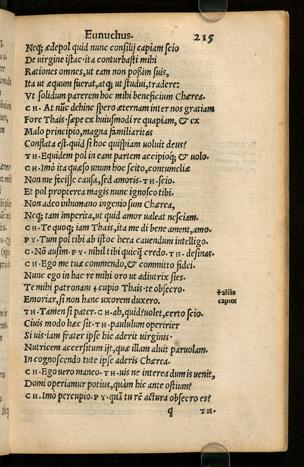 Eunuchus. 215
Neq; ædepol quid nunc consilij capiam scio
De virgine istac. ita conturbasti mihi
Rationes omnes, ut eam non possim suis,
Ita ut æquum fuerat, atq; ut studui, tradere:
Vt solidum parerem hoc mihi beneficium Chærea.
CH. At nunc dehinc spero æternam inter nos gratiam
Fore Thais. sæpe ex huiusmodi re quapiam, & ex
Malo principio, magna familiaritas
Conflata est. quid si hoc quispiam uoluit deus?
TH. Equidem pol in eam partem accipioq; & uolo.
CH. Imò ita quæso. unum hoc scito, contumeliæ
Non me fecisse causa, sed amoris. TH. scio.
Et pol propterea magis nunc ignosco tibi.
Non adeo inhumano ingenio sum Chærea,
Neq; tam imperita, ut quid amor ualeat nesciam.
CH. Te quoq; iam Thais, ita me di bene ament, amo.
PY. Tum pol tibi ab istoc hera cauendum intelligo.
C. Nō ausim. PY. nihil tibi quicq̃ credo. TH. desinas.
CH. Ego me tuæ commendo, & committo fidei.
Nunc ego in hac re mihi oro ut adiutrix sies.
Te mihi patronam ɫ cupio Thais. te obsecro.
ɫ aliàs
capio:
Emoriar, si non hanc uxorem duxero.
TH. Tamen si pater. CH. ah, quid? uolet, certo scio.
Ciuis modo hæc sit. TH. paululum opperirier
Si uis: iam frater ipse hic aderit uirginis.
Nutricem accersitum ijt, quæ illam aluit paruolam.
In cognoscendo tute ipse aderis Chærea.
CH. Ego uero maneo. TH. uis ne interea dum is uenit,
Domi operiamur potius, quàm hic ante ostium?
CH. Imò percupio. PY. quā tu rē actura obsecro es?
q TH.